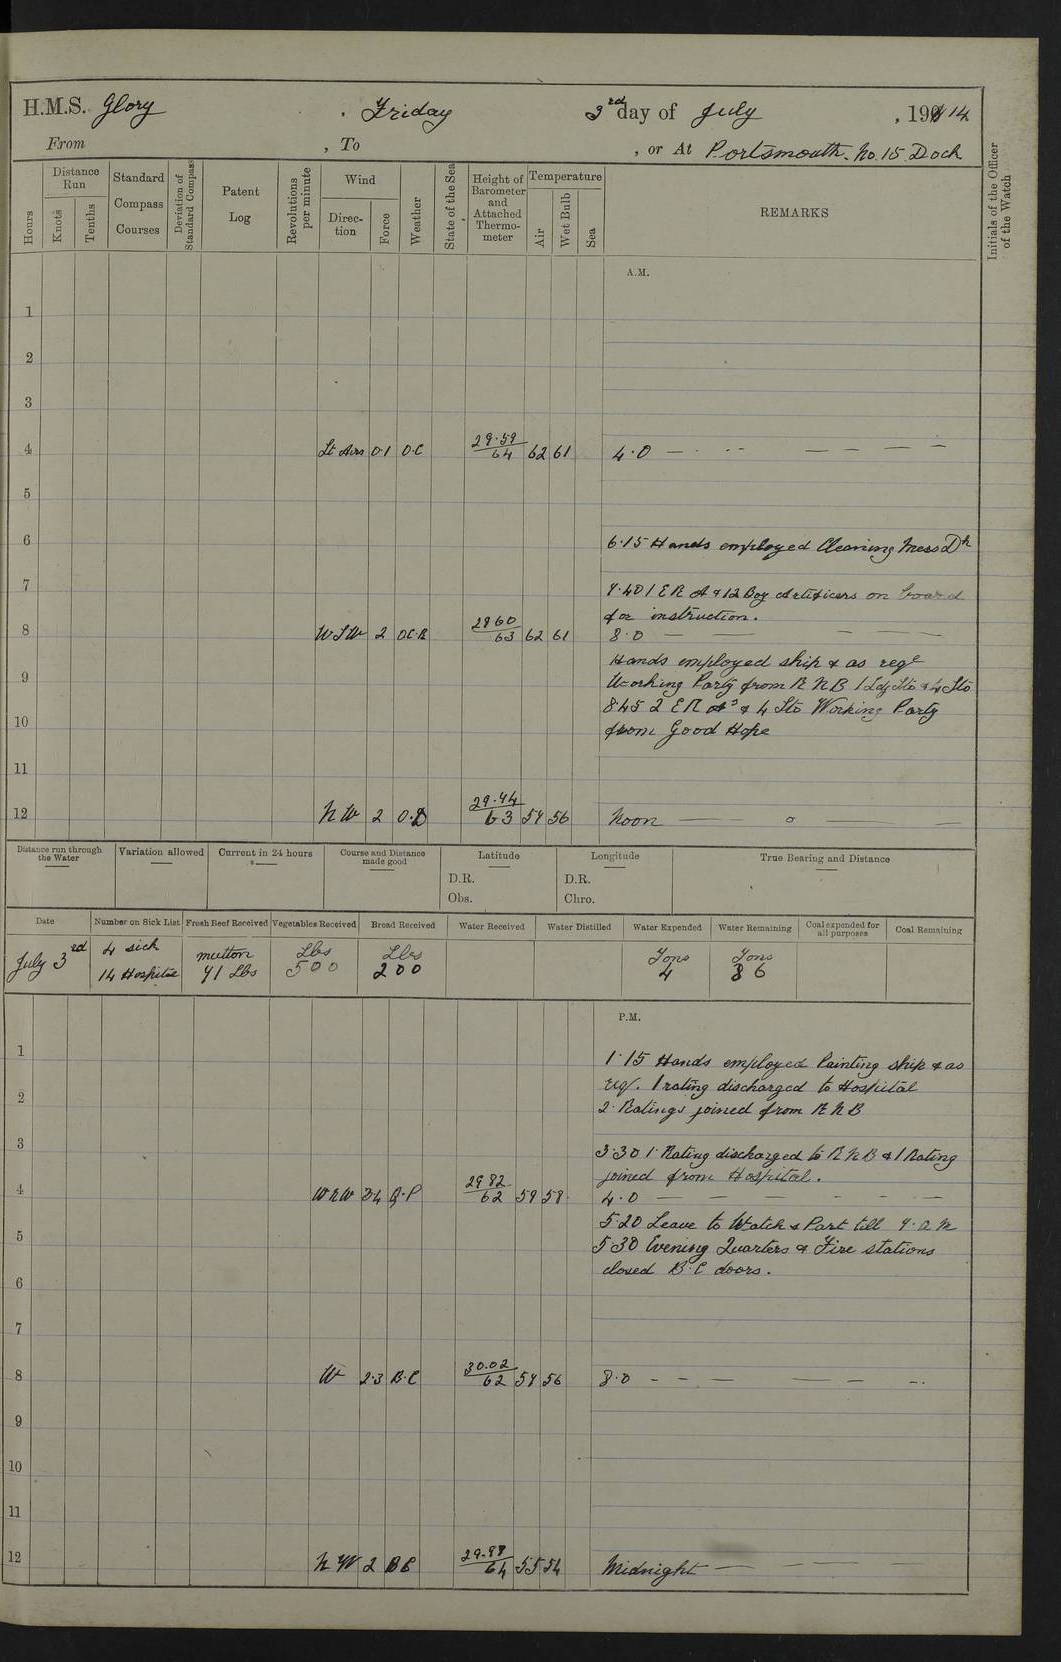 H.M.S. Glory , Friday 3rd day of July , 1914
From , To , or At Portsmouth. No. 15 Dock
Hours
Distance Run
Knots
Tenths
Standard Compass Courses
Deviation of Standard Compass
Patent Log
Revolutions per minute
Wind
Direc-tion
Force
Weather
State of the Sea
Height of Barometer and Attached Thermo-meter
Temperature
Air
Wet Bulb
Sea
REMARKS
Initials of the Officer of the Watch
A.M.
1
2
3
4 Lt Airs 0.1 O.C 29.59/64 62 61 4.0 — — — —
5
6 6.15 Hands employed Cleaning Mess Dk
7 7.40 1 ERA & 12 Boy Artificers on board
for instruction.
8 WSW 2 O.C.R 2860/63 62 61 8.0 — — — —
Hands employed ship & as reqe
9 Working Party from RNB 1 Ldg Sto & 4 Sto
8.45 2 ERAs & 4 Sto Working Party
10 from Good Hope
11
12 NW 2 O.D 29.44/63 57 56 Noon — o — —
Distance run through the Water
Variation allowed
Current in 24 hours
Course and Distance made good
Latitude
D.R.
Obs.
Longitude
D.R.
Chro.
True Bearing and Distance
Date Number on Sick List Fresh Beef Received Vegetables Received Bread Received Water Received Water Distilled Water Expended Water Remaining Coal expended for all purposes Coal Remaining
July 3rd 4 sick mutton Lbs Lbs Tons Tons
14 Hospital 71 Lbs 500 200 4 86
P.M.
1 1.15 Hands employed Painting ship & as
req. 1 rating discharged to Hospital
2 2 Ratings joined from RNB
3 3.30 1 Rating discharged to RNB & 1 Rating
joined from Hospital.
4 WNW 3.4 Q.P 2982/62 59 58 4.0 — — — — —
5.20 Leave to Watch & Part till 7.am
5 5.30 Evening Quarters & Fire stations
closed B.C doors.
6
7
8 W 2.3 B.C 30.02/62 57 56 8.0 — — — — —
9
10
11
12 NW 2 BC 29.98/64 55 54 Midnight — — — —